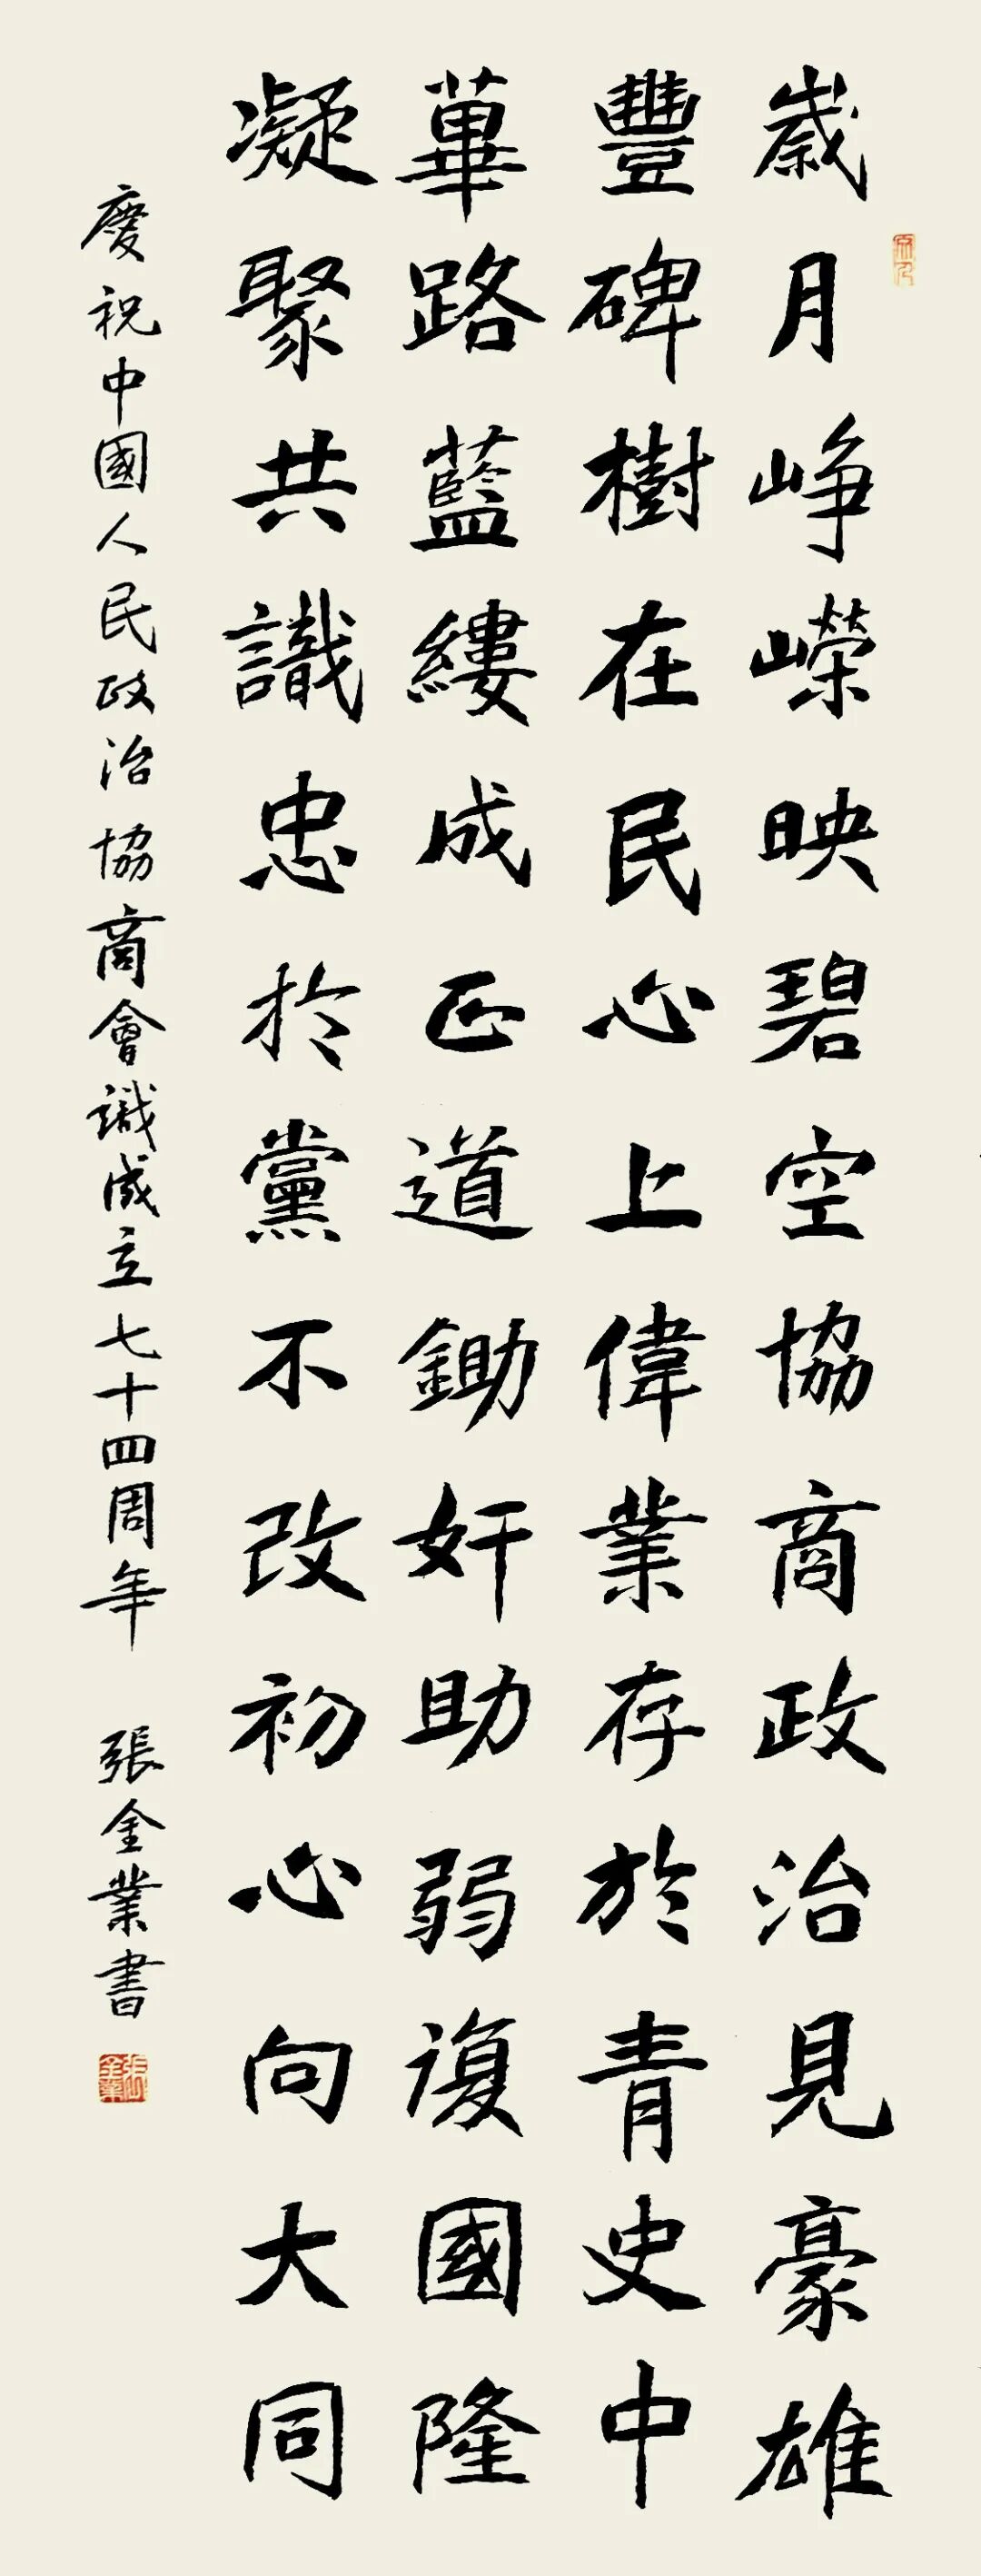 歲月崢嶸映碧空協商政治見豪雄
豐碑樹在民心上偉業存於青史中
蓽路藍縷成正道鋤奸助弱復國隆
凝聚共識忠於黨不改初心向大同
慶祝中國人民政治協商會識成立七十四周年 張金業書
張金業